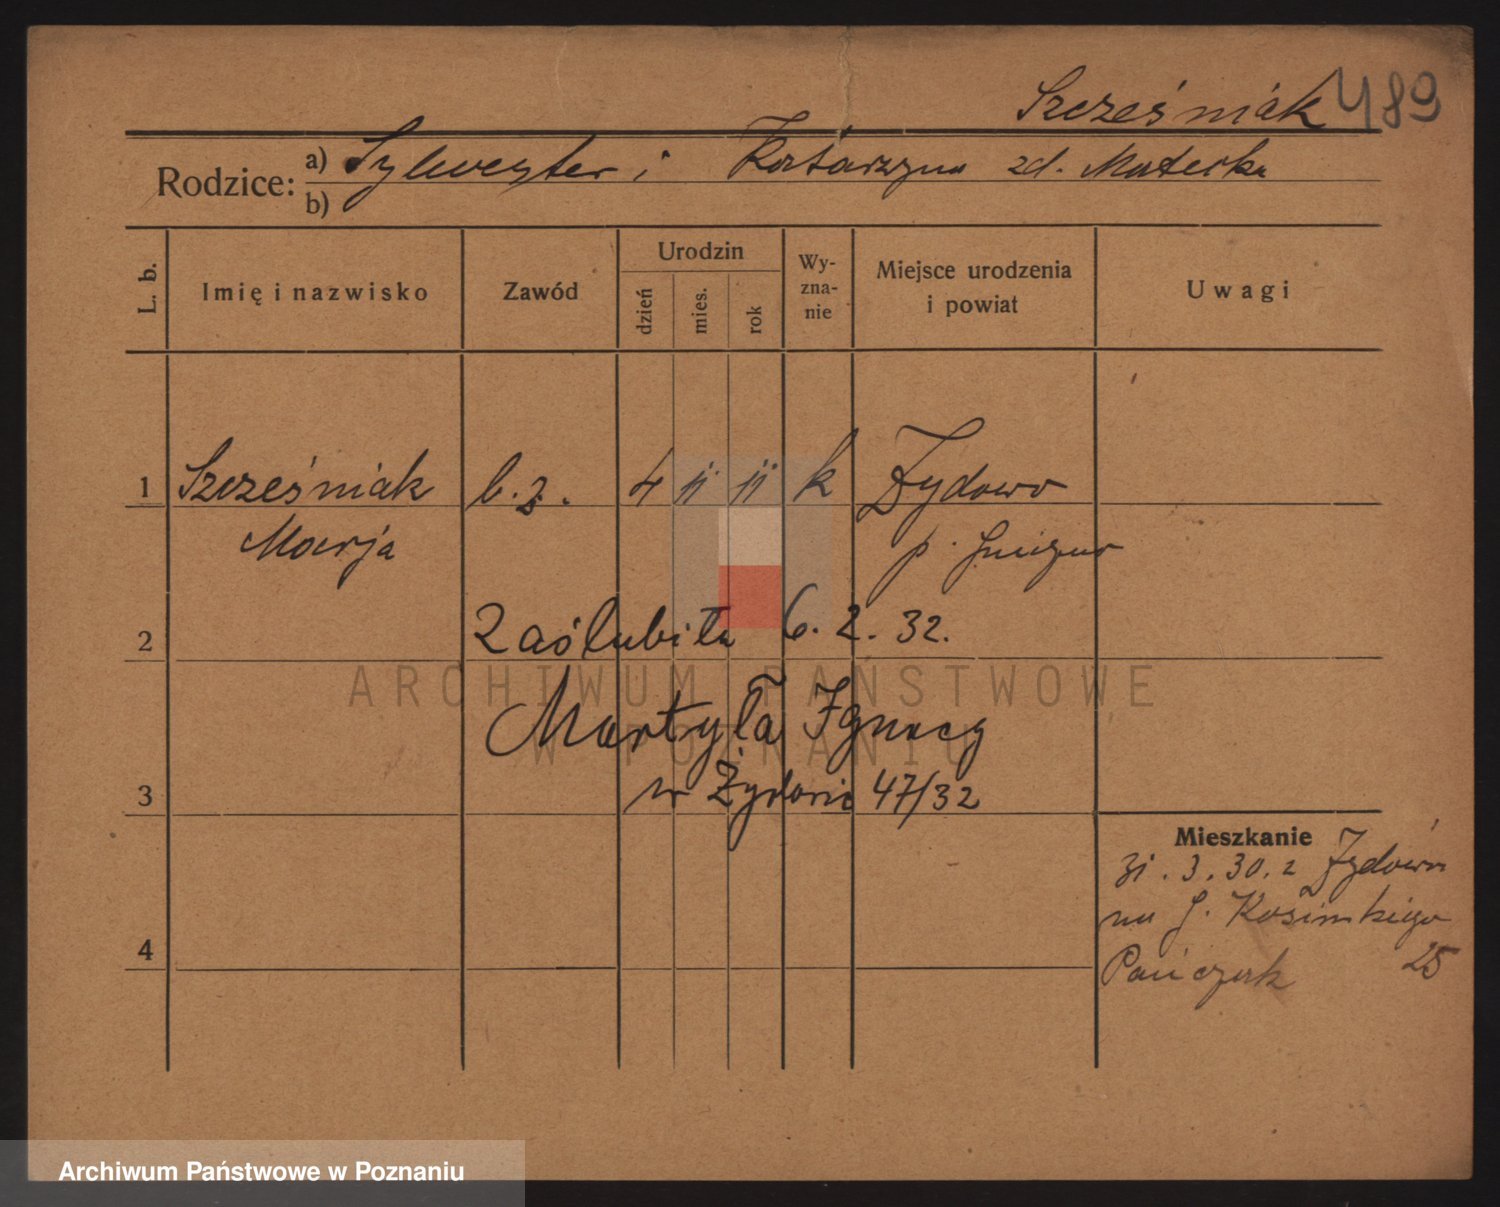 Szcześniak 489
Rodzice: a) Sylwester i Katarzyna zd. Materka
b)
L. b.
Imię i nazwisko
Zawód
Urodzin
dzień
mies.
rok
Wy-
zna-
nie
Miejsce urodzenia
i powiat
Uwagi
1 Szcześniak b. z. 4 11 11 k Żydowo
Marja p. Gniezno
2 Zaślubiła 6. 2. 32.
ARCHIWUM PAŃSTWOWE
Martyła Ignacy
W POZNANIU
3 w Żydowie 47/32
Mieszkanie
31. 3. 30. z Żydowa
na J. Kosińskiego
4 25
Archiwum Państwowe w Poznaniu